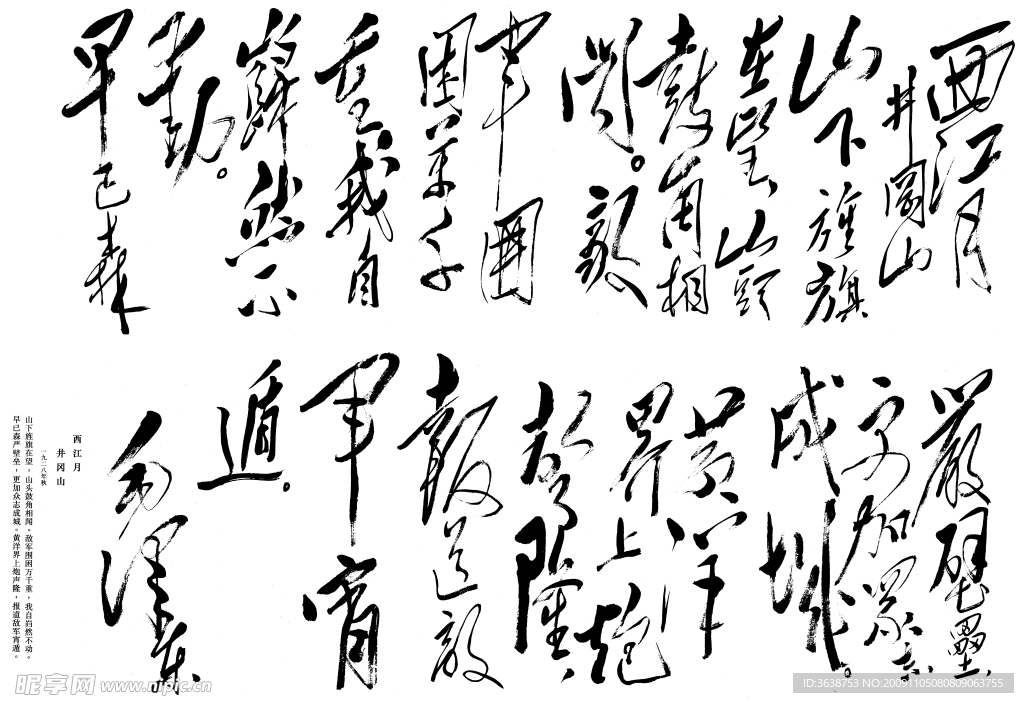 西江月
井岡山
山下旌旗
在望山頭
鼓角相
聞。敵
軍圍
困萬千
重我自
巋然不
動。
早已森
嚴壁壘
更加眾志
成城。
黄洋
界上炮
聲隆
報道敵
軍宵
遁。
毛澤東
西江月
井冈山
一九二八年秋
山下旌旗在望。山头鼓角相闻。敌军围困万千重，我自岿然不动。
早已森严壁垒，更加众志成城。黄洋界上炮声隆，报道敌军宵遁。
昵享网 www.nipic.cn
ID:3638753 NO:20091105080809063755